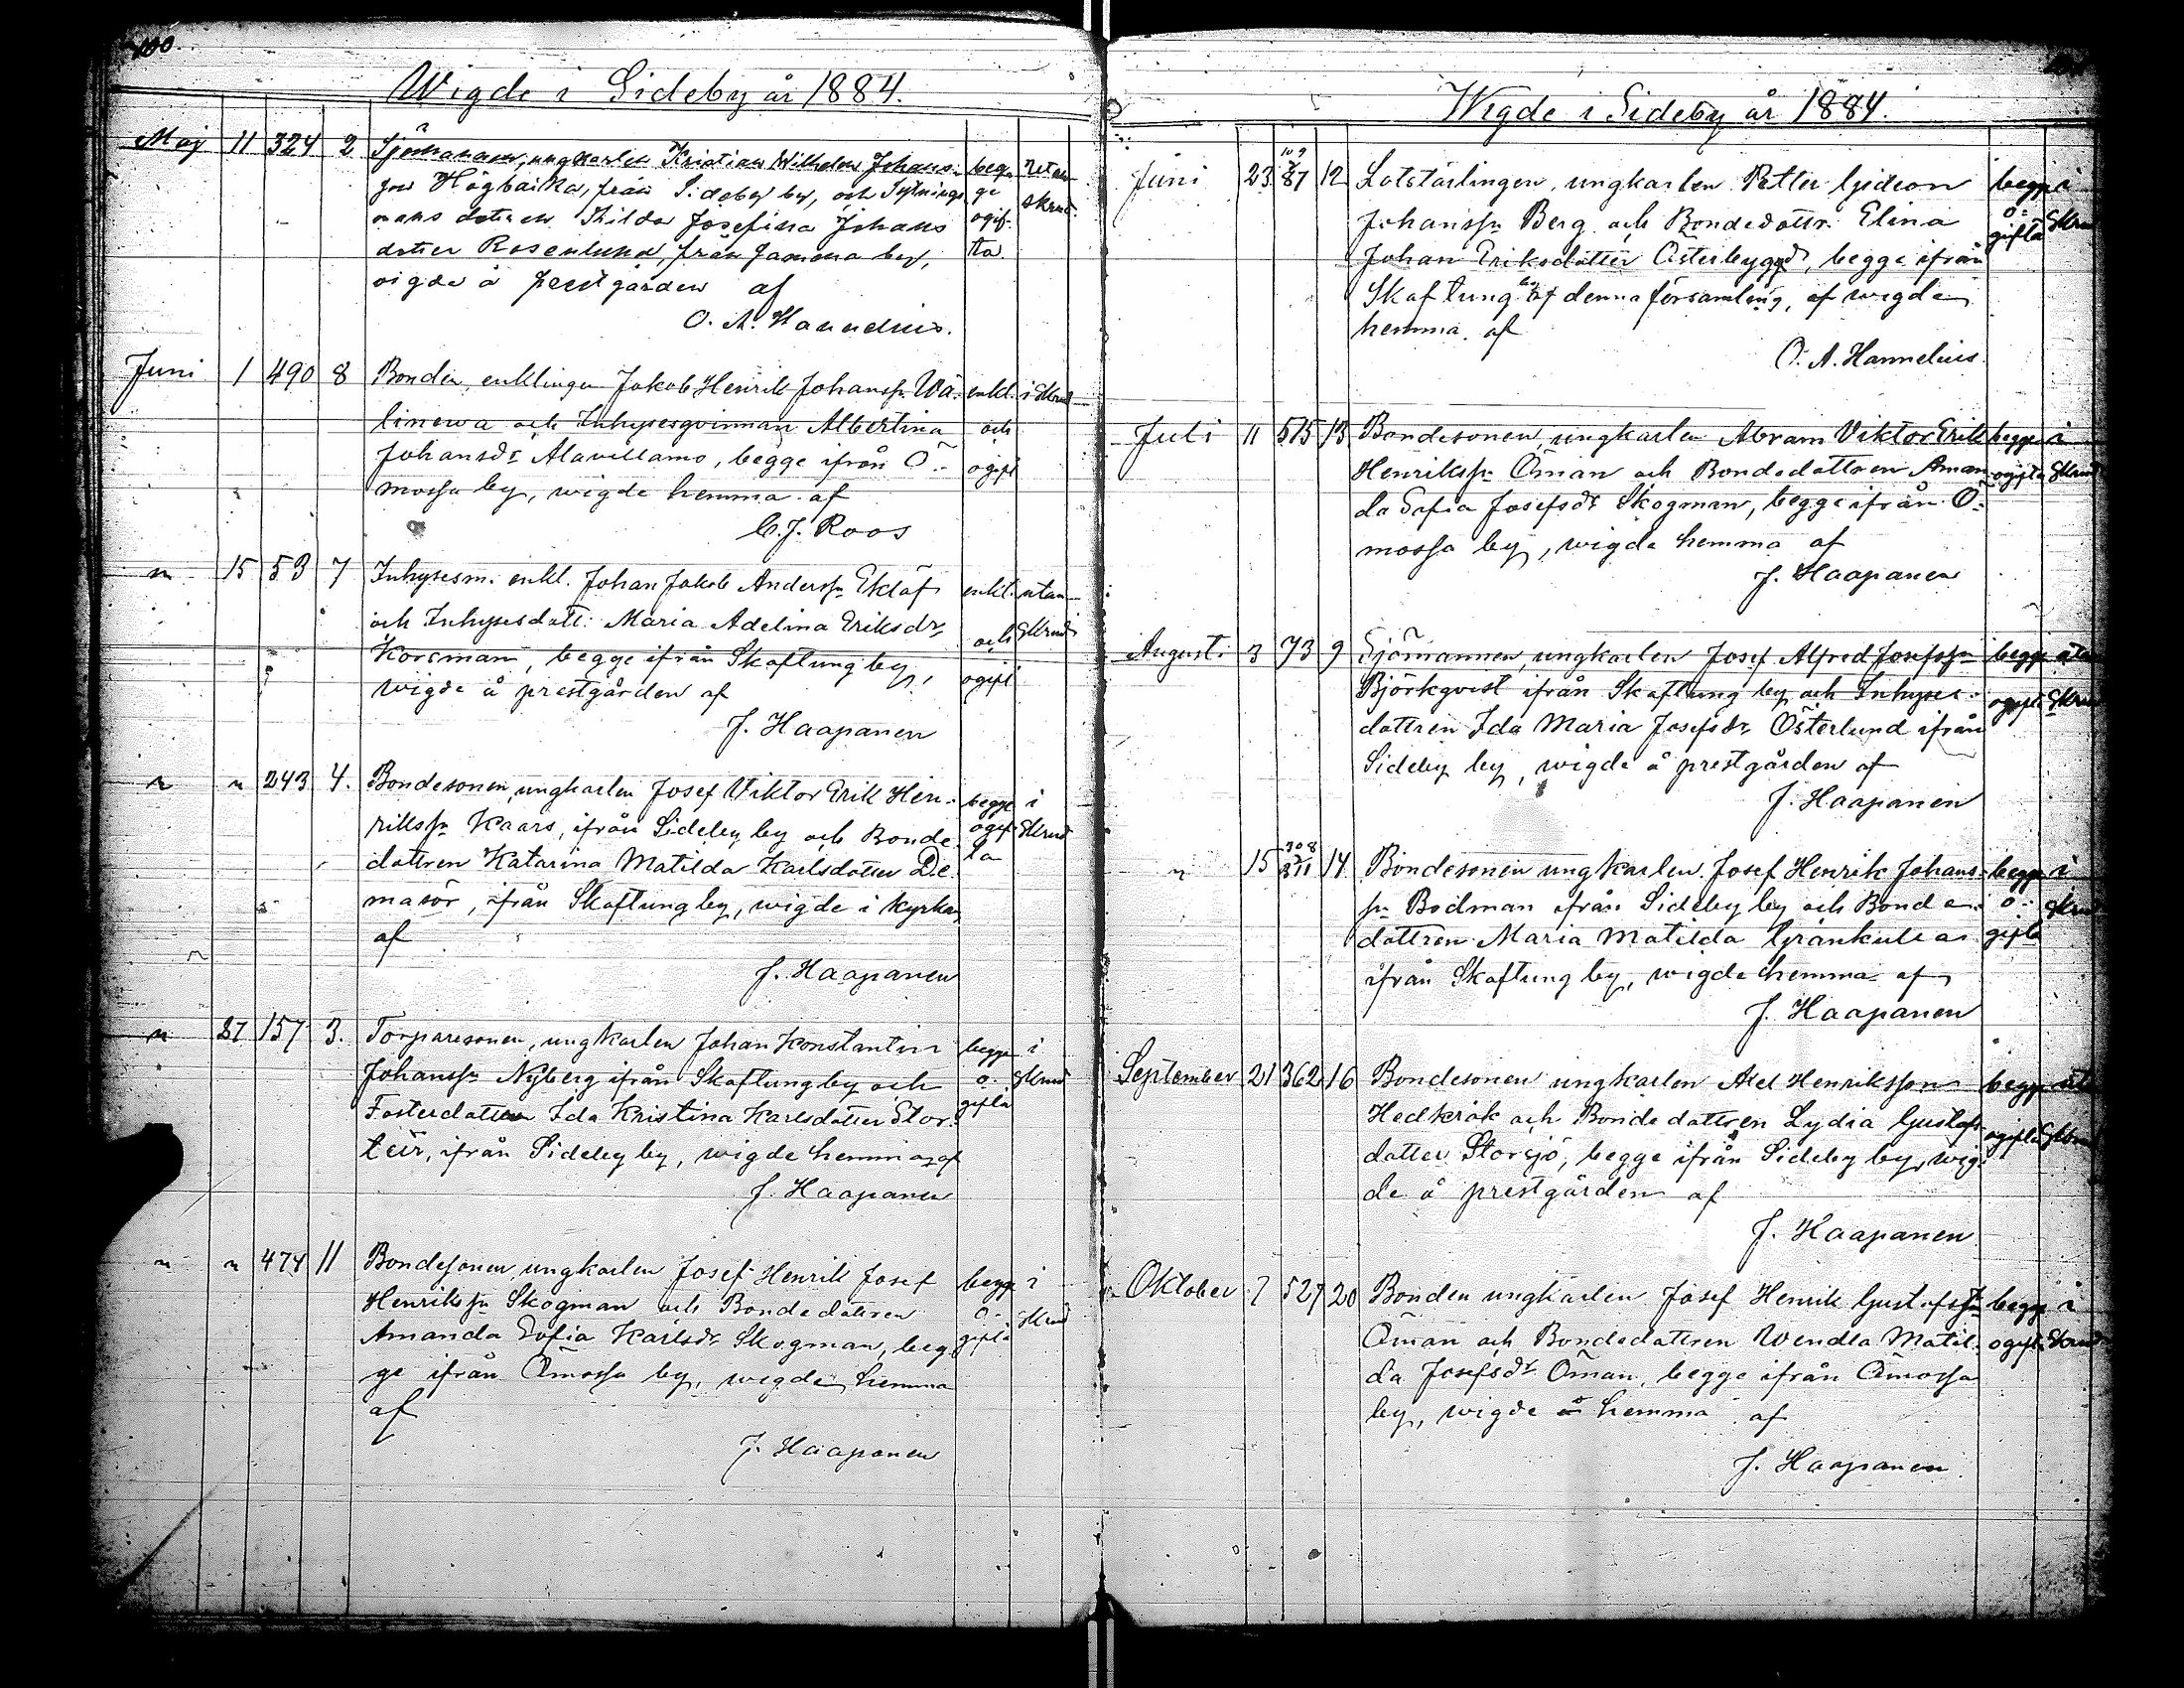 100.
Wigde i Sideby år 1884.
Maj 11 324 2 Sjömannen, ungkarlen Kristian Wilhelm Johans- beg- utan
son Högbacka, från Sideby by, och Sytnings- ge skrud.
mans dottren Hilda Josefina Johans ogif-
dotter Rosenlund, från Jammna by, ta.
vigde å prestgården af
O. A. Hannelius.
Juni 1 490 8 Bonden, enklingen Jakob Henrik Johanss:n Wä- enkl. i Skrud
linewa och Inhysesqvinnan Albertina och
Johansd:r Alavillamo, begge ifrån Ö- ogift
mossa by, wigde hemma af
C. J. Roos
" 15 53 7 Inhysesm. enkl. Johan Jakob Anderss:n Eklöf enkl. utan
och Inhysesdott: Maria Adelina Eriksdr, och Skrud
Korsman, begge ifrån Skaftung by, ogift
wigde å prestgården af
J. Haapanen
" " 243 4. Bondesonen, ungkarlen Josef Viktor Erik Hen- begge i
rikss:n Kaars, ifrån Sideby by och Bonde- ogif- Skrud
dottren Katarina Matilda Karlsdotter De- ta
masör, ifrån Skaftung by, wigde i kyrkan
af
J. Haapanen
" 27 157 3. Torparesonen, ungkarlen Johan Konstantin begge i
Johanss:n Nyberg ifrån Skaftung by och o- Skrud
Fosterdottren Ida Kristina Karlsdotter Stor- gifta
teir, ifrån Sideby by, wigde hemma af
J. Haapanen
" " 474 11 Bondesonen, ungkarlen Josef Henrik Josef begge i
Henrikss:n Skogman och Bondedottren o- skrud
Amanda Sofia Karlsdr Skogman, beg- gifta
ge ifrån Ömossa by, wigde hemma
af
J. Haapanen
Wigde i Sideby år 1884.
109
Juni 23 87 12 Lotslärlingen, ungkarlen Petter Gideon begge i
Johanss:n Berg och Bondedottr. Elina o- Skrud
Johan Eriksdotter Österbygd, begge ifrån gifta
Skaftung by af denna församling, af wigde
hemma af
O. A. Hannelius.
Juli 11 515 13 Bondesonen, ungkarlen Abram Viktor Erik begge i
Henrikss:n Öman och Bondedottren Aman- ogifta Skrud
da Sofia Josefsdr Skogman, begge ifrån Ö-
mossa by, wigde hemma af
J. Haapanen
Augusti 3 73 9 Sjömannen, ungkarlen Josef Alfred Josefss:n begge utan
Björkqvist ifrån Skaftung by och Inhyses- ogifta Skrud
dottren Ida Maria Josefsdr Österlund ifrån
Sideby by, wigde å prestgården af
J. Haapanen
308
" 15 271 14. Bondesonen ungkarlen Josef Henrik Johans- begge i
s:n Bodman ifrån Sideby by och Bonde- o- skrud
dottren Maria Matilda Grankulla gifta
ifrån Skaftung by, wigde hemma af
J. Haapanen
September 21 362 16 Bondesonen ungkarlen Axel Henriksson begge utan
Hedkrok och Bondedottren Lydia Gustafs- ogifta Skrud
dotter Storsjö, begge ifrån Sideby by, wig-
de å prestgården af
J. Haapanen
Oktober 7 527 20 Bonden ungkarlen Josef Henrik Gustafss:n begge i
Öman och Bondedottren Wendla Matil- ogifta Skrud
da Josefsdr Öman, begge ifrån Ömossa
by, wigde å hemma af
J. Haapanen